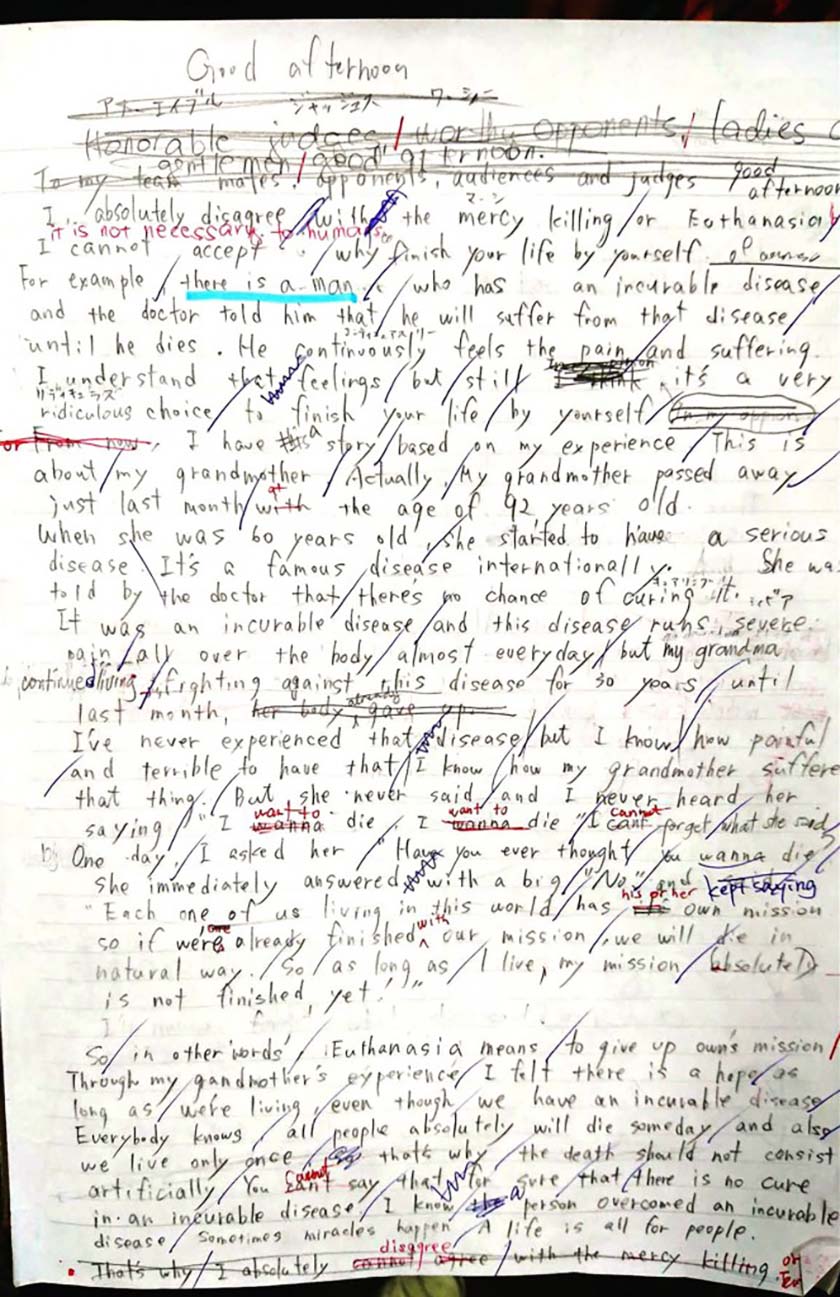 Good afternoon
アナーエイブル ジャッジス ワーシー
Honorable judges / worthy opponents / ladies
gentlemen / good afternoon.
To my team mates, opponents, audiences and judges good afternoon
I absolutely disagree / with the mercy killing / or Euthanasia
it is not necessary to humans
I cannot accept why finish your life by yourself.
For example / there is a man / who has an incurable disease
and the doctor told him that he will suffer from that disease
until he dies. He continuously feels the pain and suffering.
I understand that feelings / but still I think it's a very
リディキュラス
ridiculous choice to finish your life / by yourself / In my opinion
For From now, I have this a story / based on my experience / This is
about / my grandmother / Actually, My grandmother passed away
just last month / with at the age of 92 years old.
When she was 60 years old, she started to have a serious
disease. It's a famous disease internationally. She was
told by the doctor that there's no chance of curing it.
It was an incurable disease and this disease runs severe
pain all over the body almost everyday / but my grandma
continued living fighting against this disease for 30 years / until
last month, her body already gave up.
I've never experienced that disease / but I know / how painful
and terrible to have that / I know / how my grandmother suffere
that thing. But she never said and I never heard her
saying / "I want to wanna die, I want to wanna die "I cannot can't forget what she said
One day, I asked her / "Have you ever thought you wanna die
she immediately answered with a big "No" and kept saying
"Each one of us living in this world / has his or her own mission
so if we're are already finished with our mission, we will die in
natural way. / So / as long as / I live, my mission / absolutely
is not finished, yet."
So / in other words, Euthanasia means / to give up own's mission /
Through my gandmother's experience / I felt there is a hope as
long as / we're living, even though we have an incurable disease
Everybody knows / all people absolutely will die someday / and also
we live only once that's why / the death should not consist
artificially / You can't cannot say that for sure that / there is no cure
in an incurable disease. I know the a person overcomed an incurable
disease / Sometimes miracles happen / A life is all for people.
• That's why / I absolutely cannot agree disagree / with the mercy killing. or